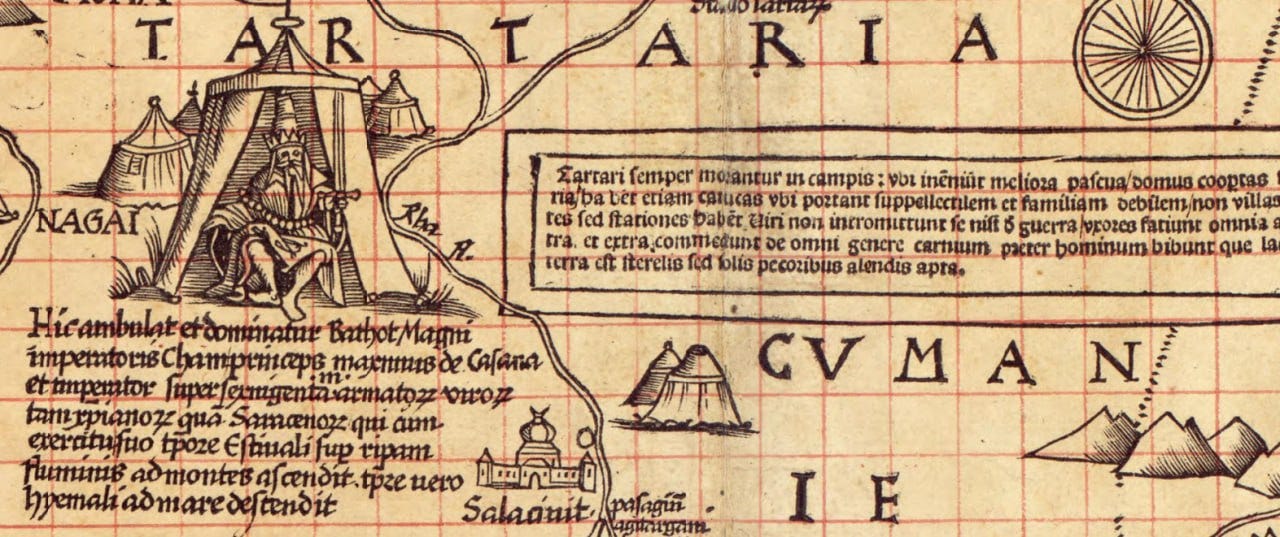 TARTARIA
NAGAI
Rha
fl.
Tartari semper morantur in campis : vbi inẽniũt meliora pascua/domus cooptas
ria/ha bẽt etiam carucas vbi portant suppellectilem et familiam debilem/non villas
tes sed stationes habẽt Uiri non intromittunt se nisi ð guerra/vxores fatiunt omnia a
tra. et extra commedunt de omni genere carnium preter hominum bibunt que la
terra est sterelis sed solis pecoribus alendis apta.
Hic ambulat et dominatur Bathot Magni
imperatoris Cham princeps maximus de Casana
et imperator super sexingenta.m. armatoꝝ viroꝝ
tam xp̃ianoꝝ quã Saracenoꝝ qui cum
exercitu suo tp̃ore Estiuali sup ripam
fluminis ad montes ascendit. tp̃re uero
hyemali ad mare descendit
CVMAN
IE
Salacinit.
pasagiũ